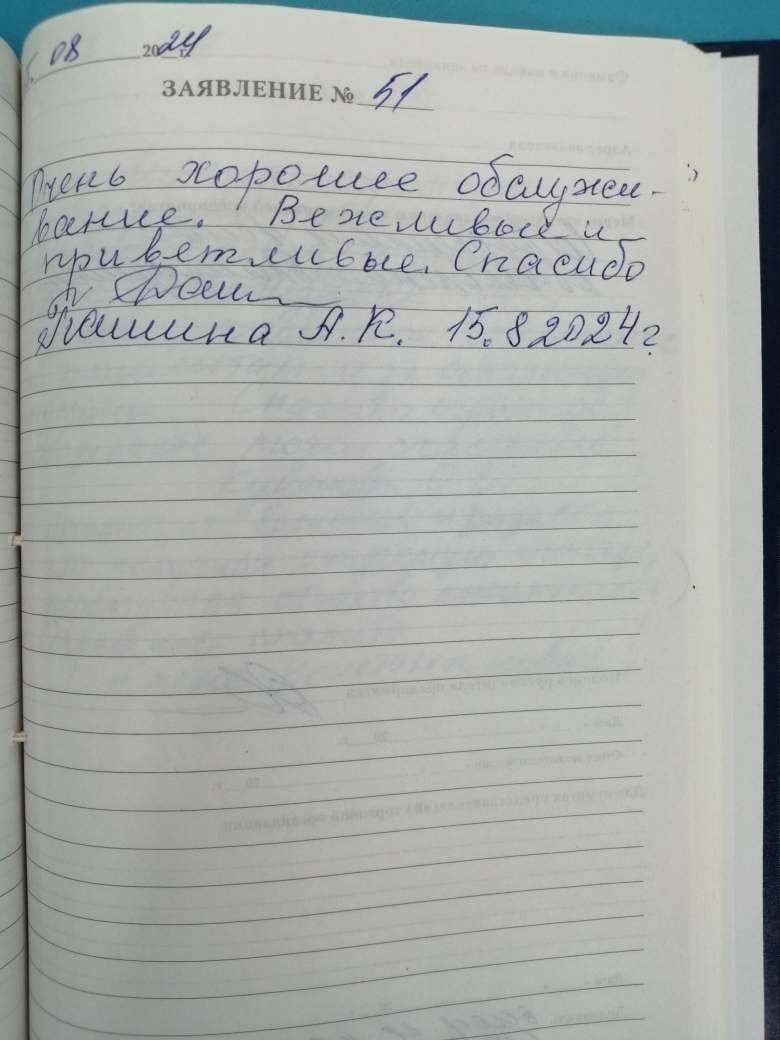 08 2024
ЗАЯВЛЕНИЕ № 51
Очень хорошее обслужи-
вание. Вежливые и
приветливые. Спасибо
А.К. 15.8 2024 г